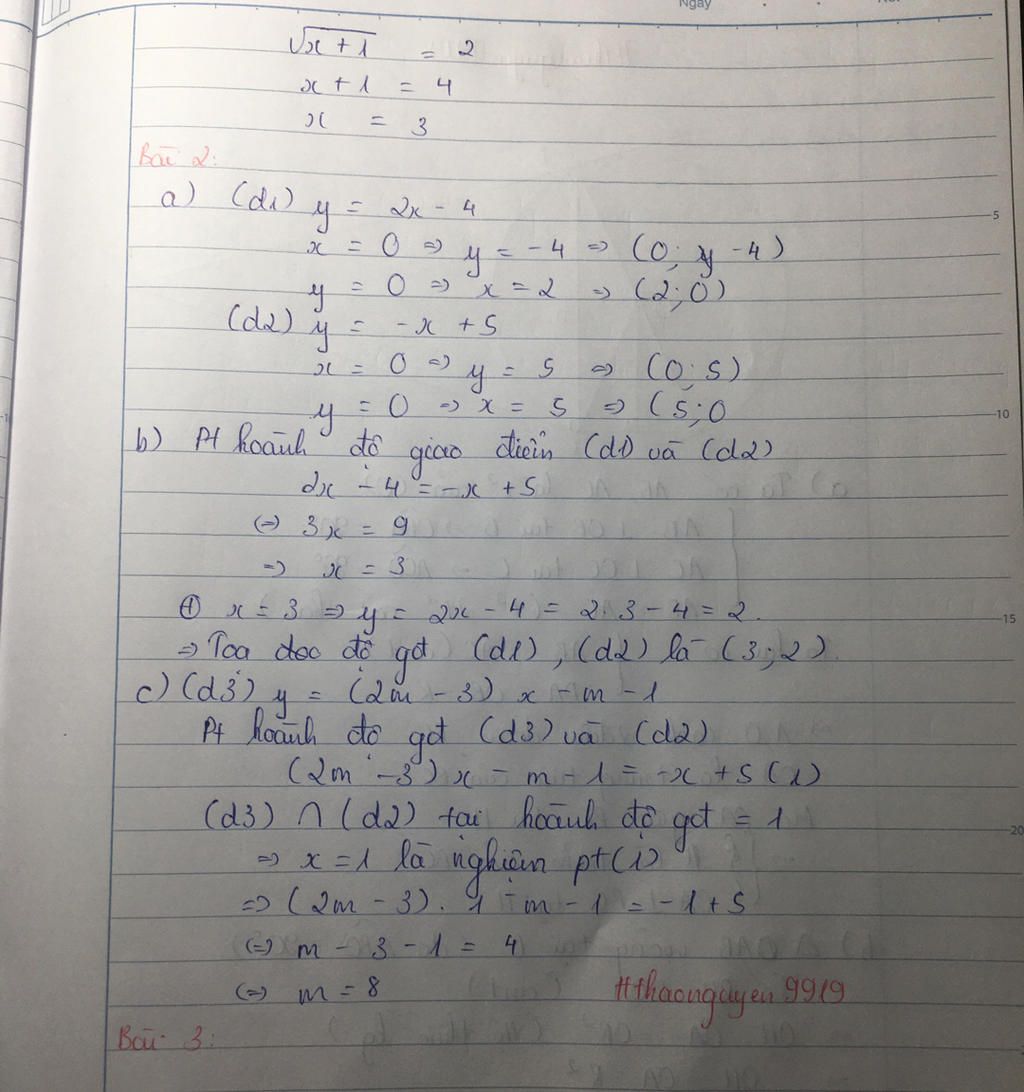 Ngày
√x + 1 = 2
x + 1 = 4
x = 3
Bài 2:
a) (d1) y = 2x - 4
x = 0 => y = -4 => (0; y -4)
y = 0 => x = 2 => (2;0)
(d2) y = -x + 5
x = 0 => y = 5 => (0; 5)
y = 0 => x = 5 => (5;0
b) Pt hoành độ giao điểm (d1) và (d2)
2x - 4 = -x + 5
(=) 3x = 9
=> x = 3
⊕ x = 3 => y = 2x - 4 = 2.3 - 4 = 2.
=> Toa doc độ gđ (d1), (d2) là (3;2).
c) (d3) y = (2m - 3) x - m - 1
Pt hoành độ gđ (d3) và (d2)
(2m - 3) x - m - 1 = -x + 5 (1)
(d3) ∩ (d2) tại hoành độ gđ = 1
=> x = 1 là nghiệm pt (1)
=> (2m - 3). 1 - m - 1 = -1 + 5
(=) m - 3 - 1 = 4
(=) m = 8
#thaonguyen 9919
Bài 3:
5
10
15
20